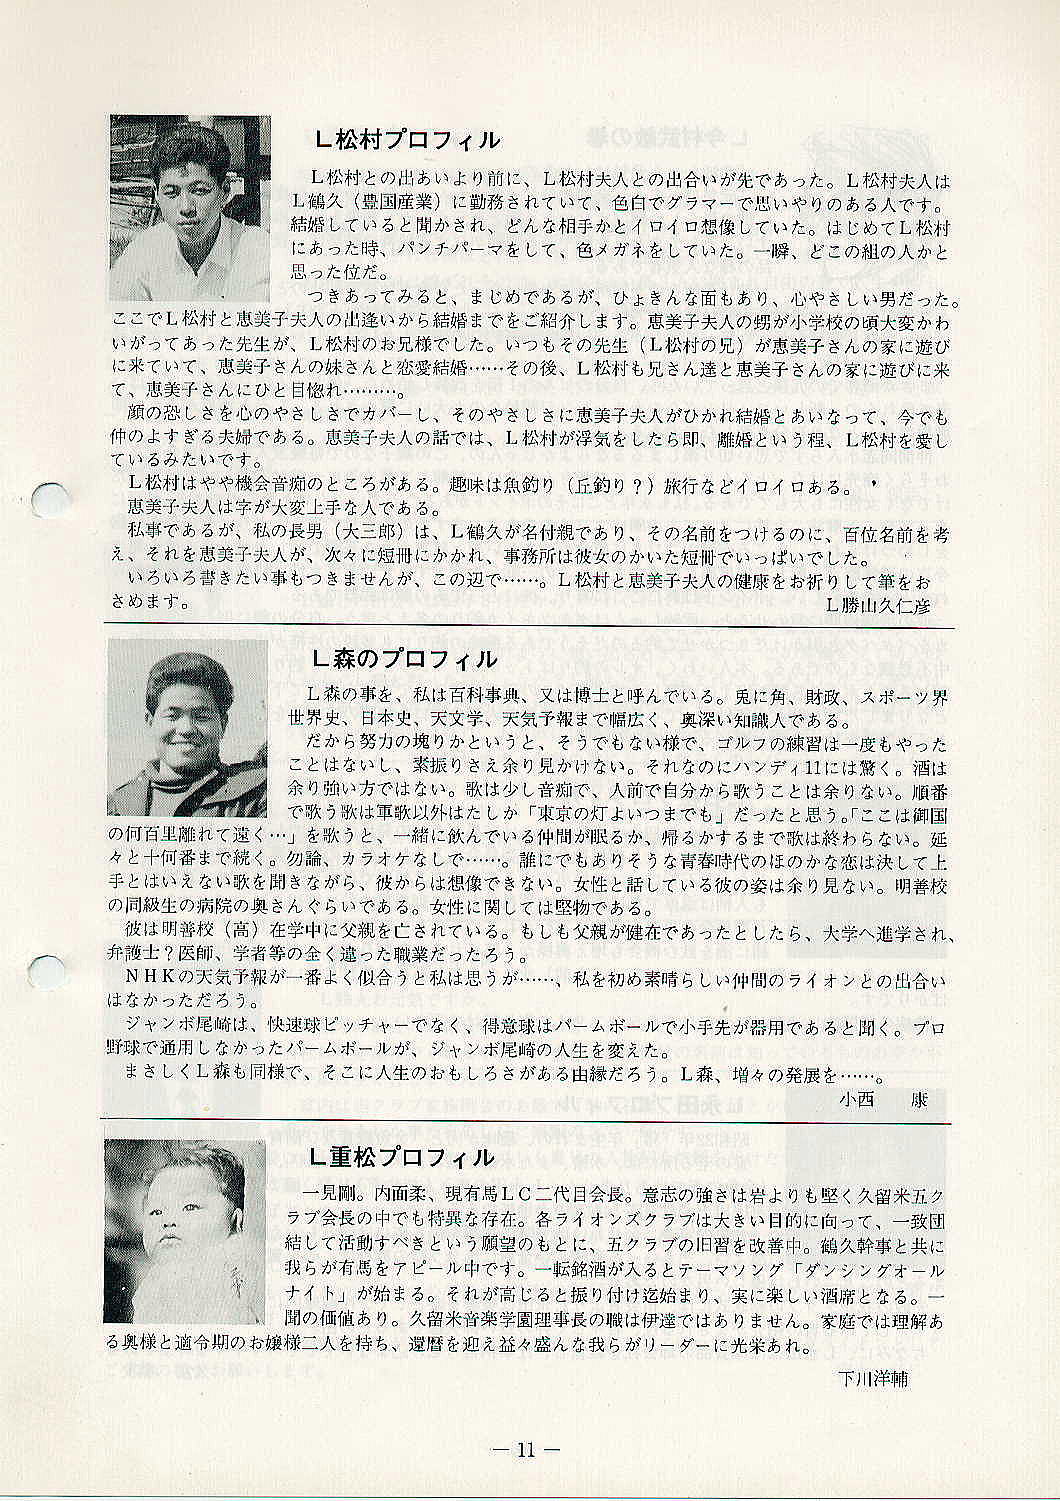 L松村プロフィル
L松村との出あいより前に、L松村夫人との出合いが先であった。L松村夫人は
L鶴久（豊国産業）に勤務されていて、色白でグラマーで思いやりのある人です。
結婚していると聞かされ、どんな相手かとイロイロ想像していた。はじめてL松村
にあった時、パンチパーマをして、色メガネをしていた。一瞬、どこの組の人かと
思った位だ。
つきあってみると、まじめであるが、ひょきんな面もあり、心やさしい男だった。
ここでL松村と恵美子夫人の出逢いから結婚までをご紹介します。恵美子夫人の甥が小学校の頃大変かわ
いがってあった先生が、L松村のお兄様でした。いつもその先生（L松村の兄）が恵美子さんの家に遊び
に来ていて、恵美子さんの妹さんと恋愛結婚……その後、L松村も兄さん達と恵美子さんの家に遊びに来
て、恵美子さんにひと目惚れ………。
顔の恐しさを心のやさしさでカバーし、そのやさしさに恵美子夫人がひかれ結婚とあいなって、今でも
仲のよすぎる夫婦である。恵美子夫人の話では、L松村が浮気をしたら即、離婚という程、L松村を愛し
ているみたいです。
L松村はやや機会音痴のところがある。趣味は魚釣り（丘釣り？）旅行などイロイロある。
恵美子夫人は字が大変上手な人である。
私事であるが、私の長男（大三郎）は、L鶴久が名付親であり、その名前をつけるのに、百位名前を考
え、それを恵美子夫人が、次々に短冊にかかれ、事務所は彼女のかいた短冊でいっぱいでした。
いろいろ書きたい事もつきませんが、この辺で……。L松村と恵美子夫人の健康をお祈りして筆をお
さめます。
L勝山久仁彦
L森のプロフィル
L森の事を、私は百科事典、又は博士と呼んでいる。兎に角、財政、スポーツ界
世界史、日本史、天文学、天気予報まで幅広く、奥深い知識人である。
だから努力の塊りかというと、そうでもない様で、ゴルフの練習は一度もやった
ことはないし、素振りさえ余り見かけない。それなのにハンディ11には驚く。酒は
余り強い方ではない。歌は少し音痴で、人前で自分から歌うことは余りない。順番
で歌う歌は軍歌以外はたしか「東京の灯よいつまでも」だったと思う。「ここは御国
の何百里離れて遠く…」を歌うと、一緒に飲んでいる仲間が眠るか、帰るかするまで歌は終わらない。延
々と十何番まで続く。勿論、カラオケなしで……。誰にでもありそうな青春時代のほのかな恋は決して上
手とはいえない歌を聞きながら、彼からは想像できない。女性と話している彼の姿は余り見ない。明善校
の同級生の病院の奥さんぐらいである。女性に関しては堅物である。
彼は明善校（高）在学中に父親を亡されている。もしも父親が健在であったとしたら、大学へ進学され、
弁護士？医師、学者等の全く違った職業だったろう。
NHKの天気予報が一番よく似合うと私は思うが……、私を初め素晴らしい仲間のライオンとの出合い
はなかっただろう。
ジャンボ尾崎は、快速球ピッチャーでなく、得意球はパームボールで小手先が器用であると聞く。プロ
野球で通用しなかったパームボールが、ジャンボ尾崎の人生を変えた。
まさしくL森も同様で、そこに人生のおもしろさがある由縁だろう。L森、増々の発展を……。
小西　康
L重松プロフィル
一見剛。内面柔、現有馬LC二代目会長。意志の強さは岩よりも堅く久留米五ク
ラブ会長の中でも特異な存在。各ライオンズクラブは大きい目的に向って、一致団
結して活動すべきという願望のもとに、五クラブの旧習を改善中。鶴久幹事と共に
我らが有馬をアピール中です。一転銘酒が入るとテーマソング「ダンシングオール
ナイト」が始まる。それが高じると振り付け迄始まり、実に楽しい酒席となる。一
聞の価値あり。久留米音楽学園理事長の職は伊達ではありません。家庭では理解あ
る奥様と適令期のお嬢様二人を持ち、還暦を迎え益々盛んな我らがリーダーに光栄あれ。
下川洋輔
— 11 —